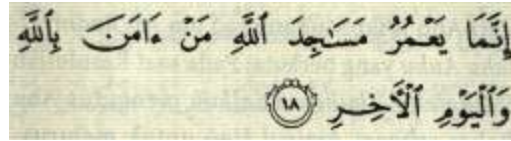 إِنَّمَا يَعْمُرُ مَسَـٰجِدَ ٱللَّهِ مَنْ ءَامَنَ بِٱللَّهِ
وَٱلْيَوْمِ ٱلْـَٔاخِرِ ١٨